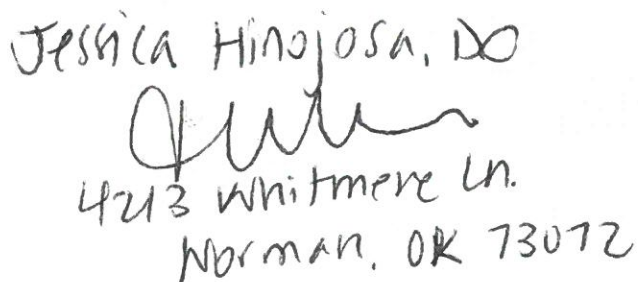 Jessica Hinojosa, DO
4213 Whitmere Ln.
Norman, OK 73072